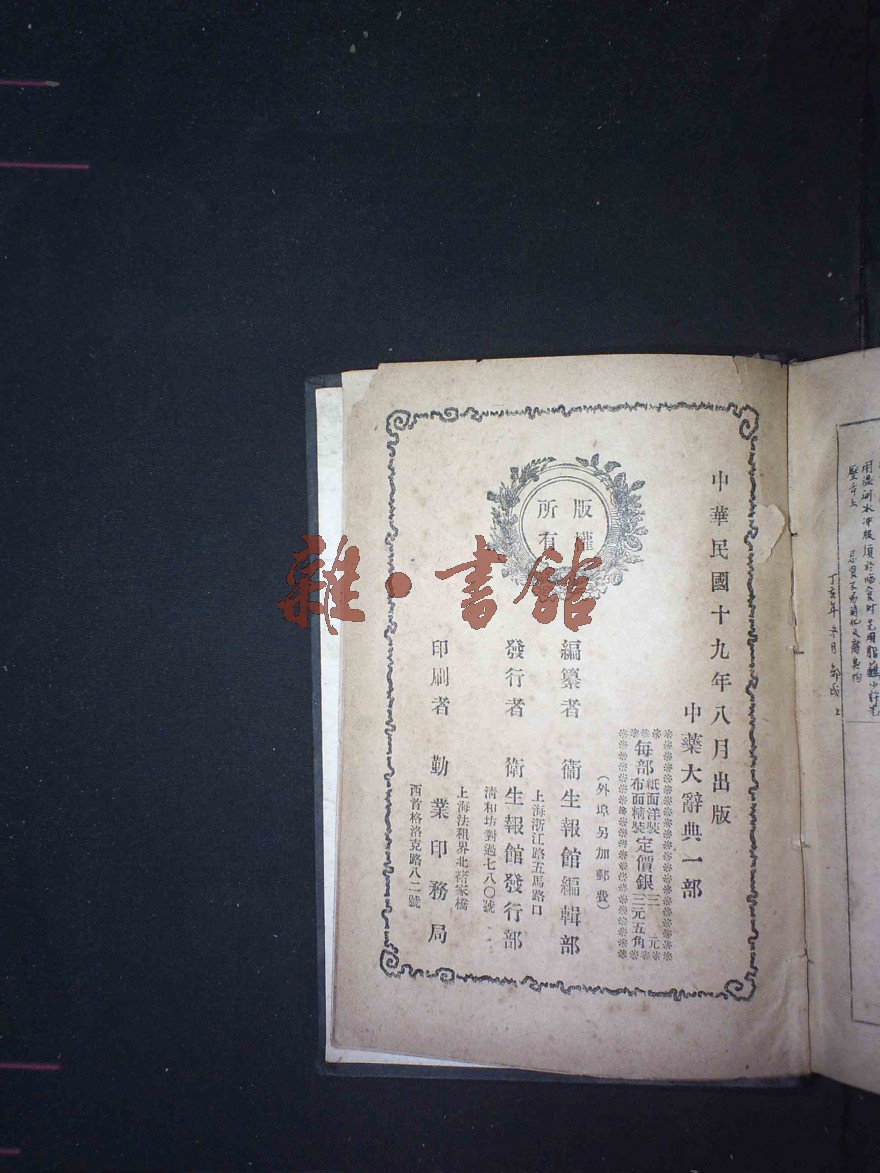 中華民國十九年八月出版
中藥大辭典一部
每部紙面洋裝定價銀三元
布面精裝 三元五角
（外埠另加郵費）
版權
所有
編纂者 衞生報館編輯部
發行者 衛生報館發行部
上海浙江路五馬路口
清和坊對過七八〇號
印刷者 勤業印務局
上海法租界北褚家橋
西首格洛克路八二號
雜·書館
丁亥年